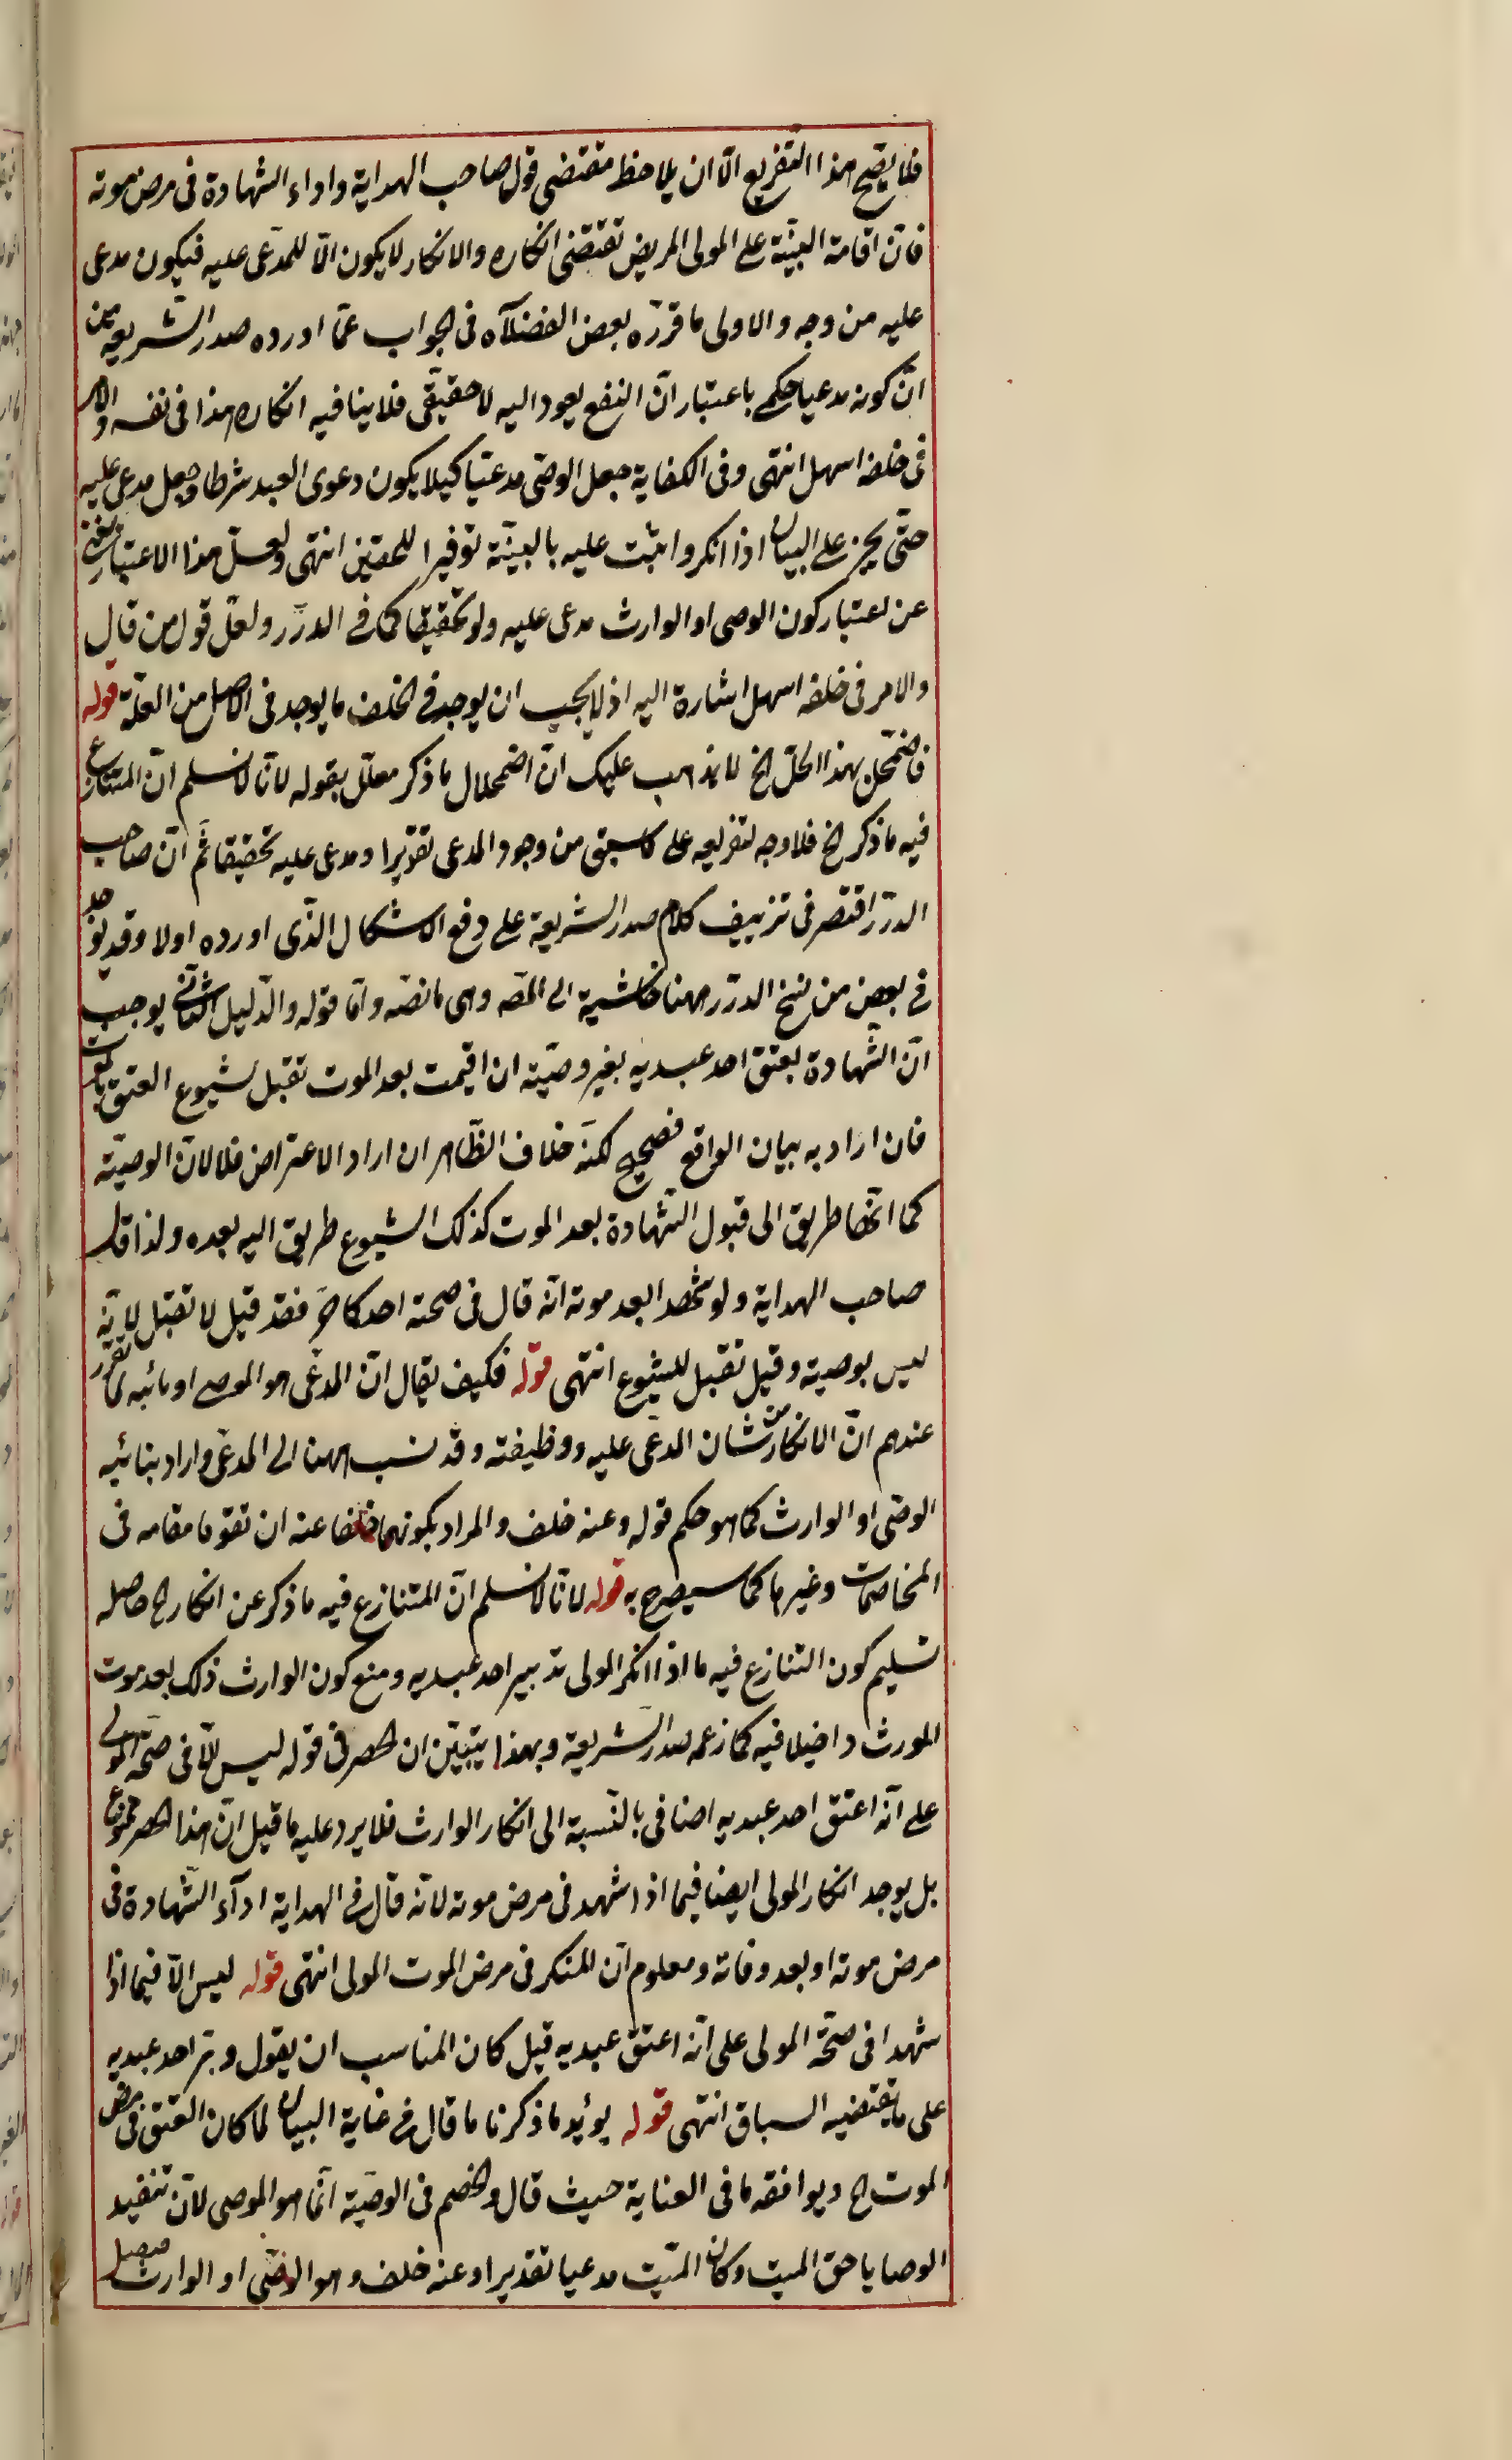 فلا يصح هذا التفريع الا ان يلاحظ مقتضى قول صاحب الهداية واداء الشهادة فى مرض موته
فان اقامة البينة على المولى المريض تقتضى انكاره والانكار لا يكون الا للمدعى عليه فيكون مدعى
عليه من وجه والاولى ما قرره بعض الفضلاء فى الجواب عما اورده صدر الشريعة من
ان كونه مدعيا حكمى باعتبار ان النفع يعود اليه لا حقيقى فلا ينافيه انكاره هذا فى نفسه والامر
فى خلفه اسهل انتهى وفى الكفاية جعل الوصى مدعيا كيلا يكون دعوى العبد شرطا وجعل مدعى عليه
حتى يجبر على البيان اذا انكر واثبت عليه بالبينة توفيرا للحقين انتهى ولعل هذا الاعتبار يغنى
عن اعتبار كون الوصى او الوارث مدعى عليه ولو تحقيقا كما فى الدرر ولعل قول من قال
والامر فى خلفه اسهل اشارة اليه اذ لا يجب ان يوجد فى الخلف ما يوجد فى الاصل من العلة قوله
فاضمحل بهذا الحل الخ لا يذهب عليك ان اضمحلال ما ذكر معلل بقوله لانا لا نسلم ان المتنازع
فيه ما ذكر الخ فلا وجه لتفريعه على ما سبق من وجود المدعى تقديرا ومدعى عليه تحقيقا ثم ان صاحب
الدرر اقتصر فى تزييف كلام صدر الشريعة على دفع الاشكال الذى اورده اولا وقد يوجد
فى بعض من نسخ الدرر ههنا حاشية الى المصه وهى ما نصه واما قوله والدليل الثانى يوجب
ان الشهادة بعتق احد عبديه بغير وصيته ان اقيمت بعد الموت تقبل لشيوع العتق بالموت
فان اراد به بيان الواقع فصحيح لكنه خلاف الظاهر ان اراد الاعتراض فلا لان الوصية
كما انها طريق الى قبول الشهادة بعد الموت كذلك الشيوع طريق اليه بعده ولذا قال
صاحب الهداية ولو شهدا بعد موته انه قال فى صحته احدكما حر فقد قيل لا تقبل لانه
ليس بوصية وقيل تقبل للشيوع انتهى قوله فكيف يقال ان المدعى هو الموصى او نائبه لما تقرر
عندهم ان الانكار من شان المدعى عليه ووظيفته وقد نسب ههنا الى المدعى واراد بنائبه
الوصى او الوارث كما هو حكم قوله وعنه خلف والمراد بكونهما خلفا عنه ان تقوما مقامه فى
المخاصمات وغيرها كما سيصرح به قوله لانا لا نسلم ان المتنازع فيه ما ذكر عن انكار الخ حاصله
تسليم كون التنازع فيه ما اذا انكر المولى تدبير احد عبديه ومنع كون الوارث ذلك بعد موت
المورث داخلا فيه كما زعمه صدر الشريعة وبهذا يتبين ان الحصر فى قوله ليس الا فى صحة المولى
على انه اعتق احد عبديه اضافى بالنسبة الى انكار الوارث فلا يرد عليه ما قيل ان هذا الحصر ممنوع
بل يوجد انكار المولى ايضا فيما اذا شهد فى مرض موته لانه قال فى الهداية اداء الشهادة فى
مرض موته او بعد وفاته ومعلوم ان للمنكر فى مرض الموت المولى انتهى قوله ليس الا فيما اذا
شهدا فى صحة المولى على انه اعتق عبديه قيل كان المناسب ان يقول دبر احد عبديه
على ما يقتضيه السباق انتهى قوله يؤيد ما ذكرنا ما قال فى غاية البيان لما كان العتق فى مرض
الموت الخ ويوافقه ما فى العناية حيث قال والخصم فى الوصية انما هو الموصى لان تنفيذ
الوصايا حق الميت وكان الميت مدعيا تقديرا وعنه خلف وهو الوصى او الوارث فيصل